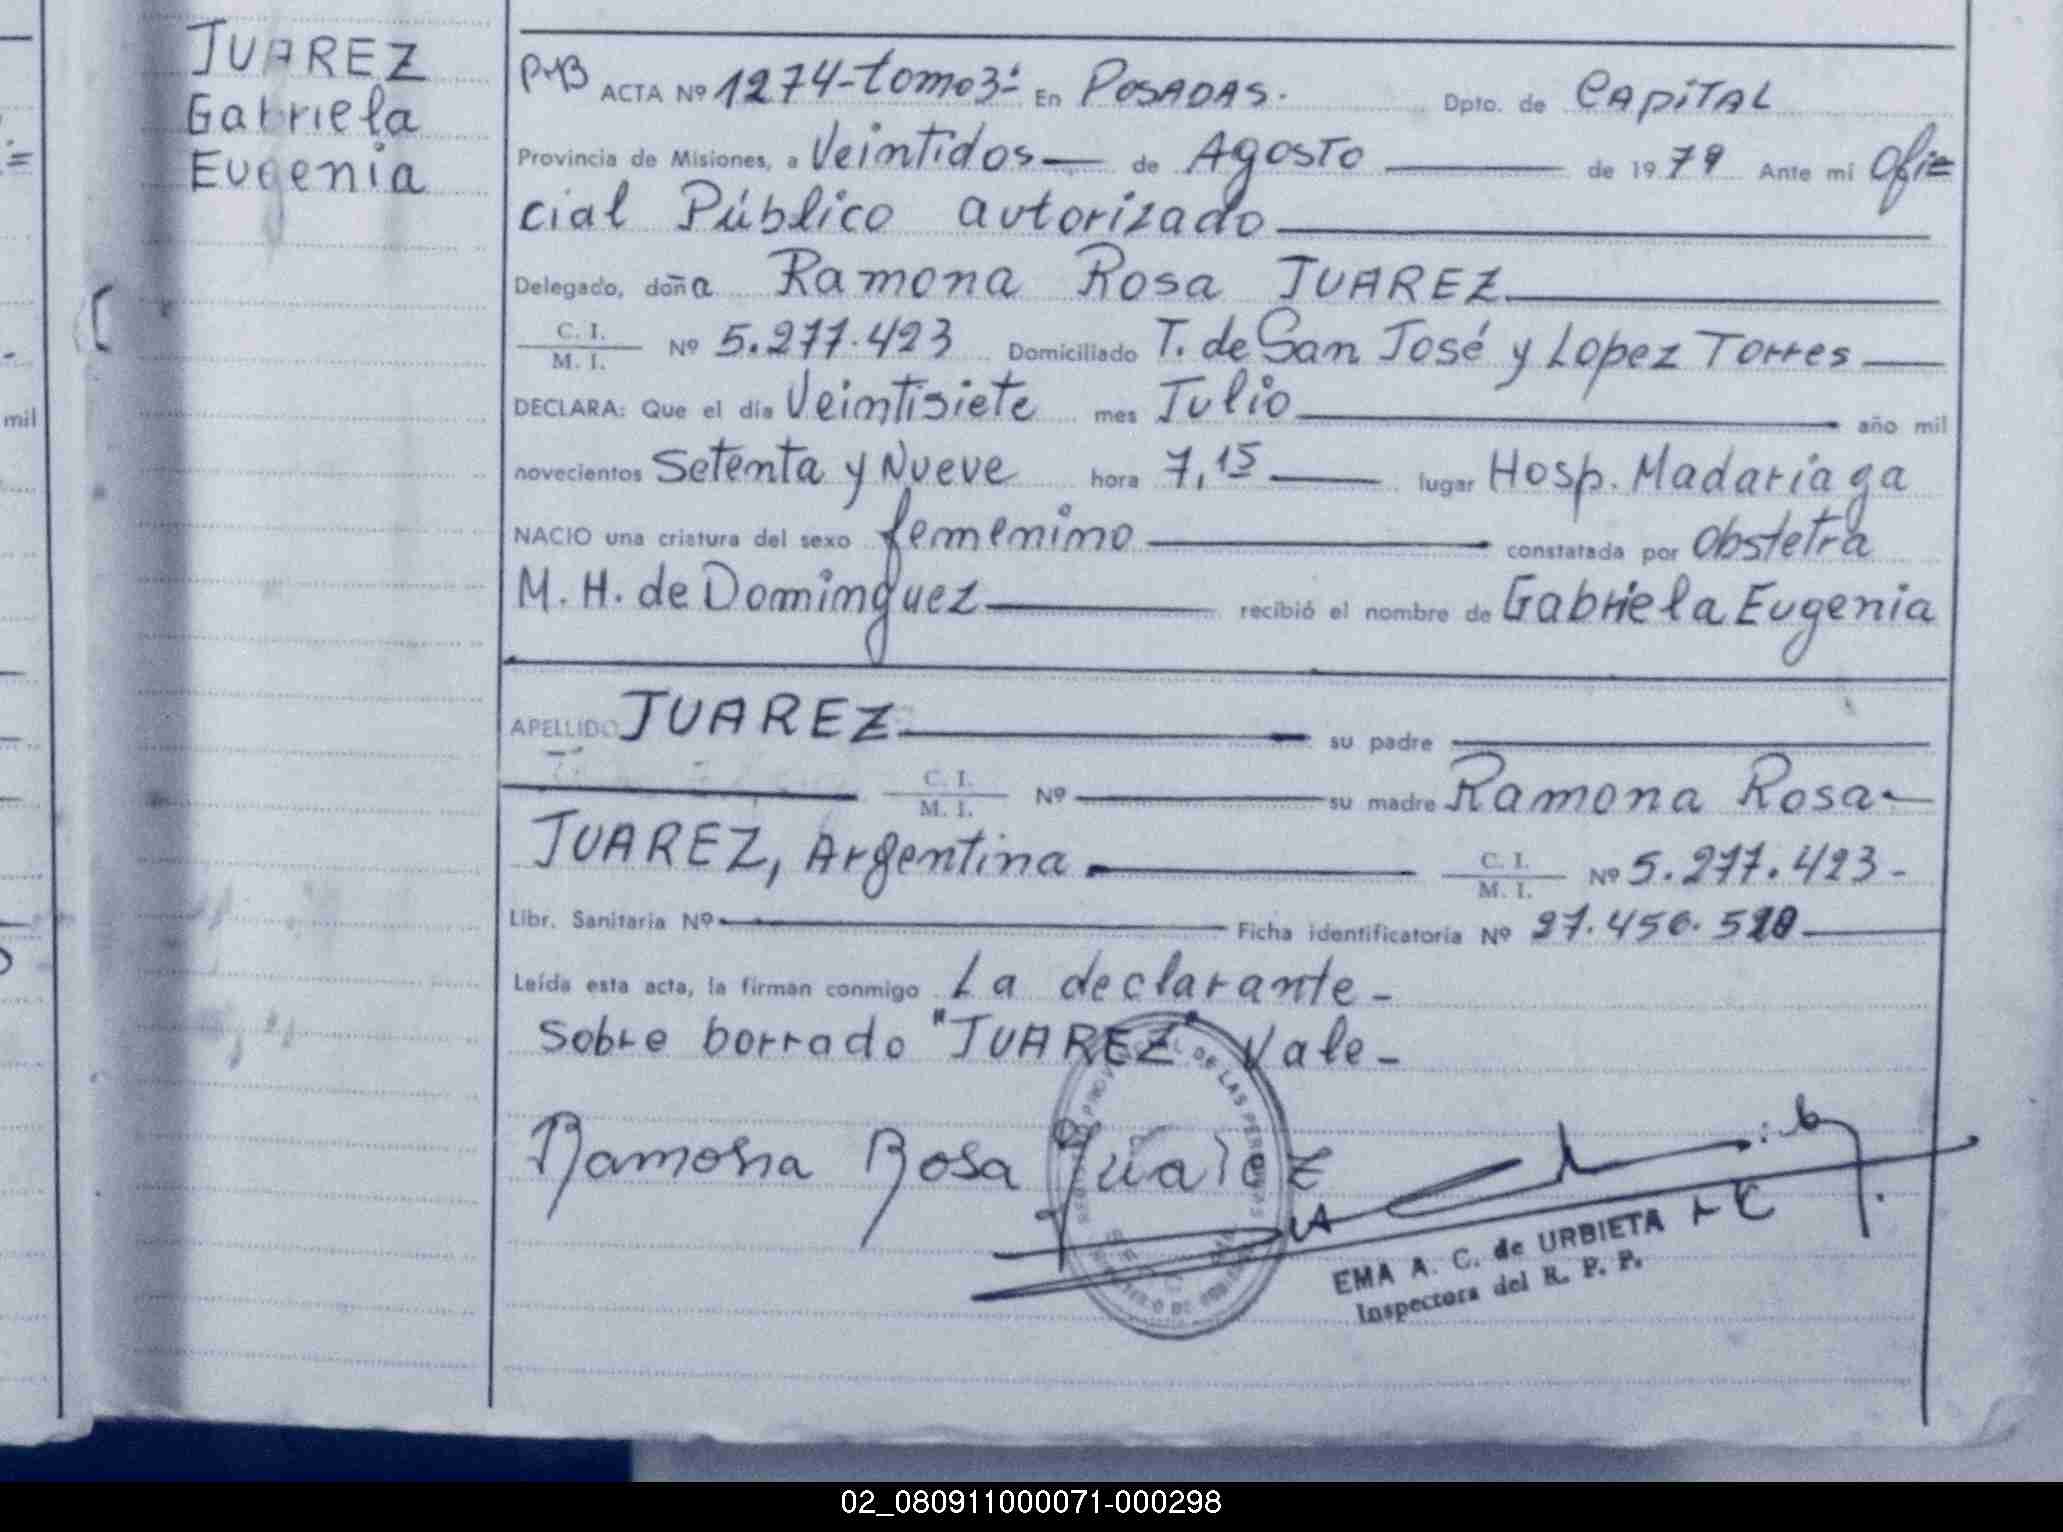 JUAREZ
Gabriela
Eugenia
mil
ACTA Nº 1274-tomo3º En POSADAS. Dpto. de CAPITAL
Provincia de Misiones, a Veintidos de Agosto de 1979 Ante mí Ofi=
cial Público autorizado
Delegado, doña Ramona Rosa JUAREZ
C. I.
M. I. Nº 5.277.423 Domiciliado T. de San José y Lopez Torres
DECLARA: Que el día Veintisiete mes Julio año mil
novecientos Setenta y Nueve hora 7,15 lugar Hosp. Madariaga
NACIO una criatura del sexo femenino constatada por Obstetra
M. H. de Dominguez recibió el nombre de Gabriela Eugenia
APELLIDO JUAREZ su padre
C. I.
M. I. Nº su madre Ramona Rosa
JUAREZ, Argentina C. I.
M. I. Nº 5.277.423-
Libr. Sanitaria Nº Ficha identificatoria Nº 27.456.
Leída esta acta, la firman conmigo La declarante-
Sobre borrado "JUAREZ" Vale-
Ramona Rosa Juarez
DE LAS PERSONAS
EMA A. C. de URBIETA
Inspectora del R. P. P.
02_080911000071-000298